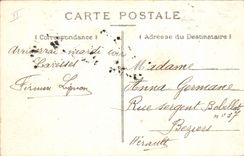 CARTE POSTALE
Correspondance
Adresse du Destinataire
mardi soir
Baisers
Madame
Anna Germane
Rue Sergent
Beziers
Hérault